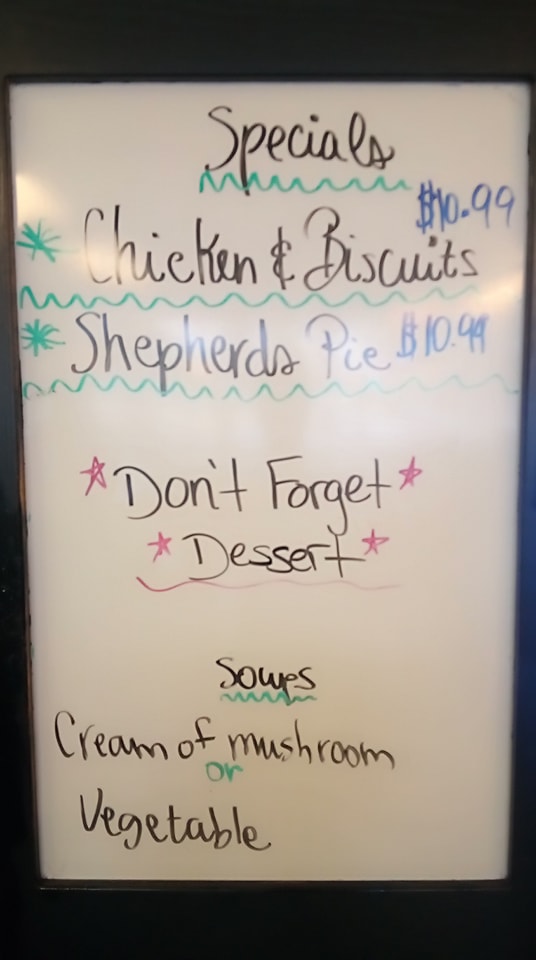 Specials
$10.99
* Chicken & Biscuits
* Shepherds Pie $10.99
* Don't Forget *
* Dessert *
Soups
Cream of mushroom
or
Vegetable